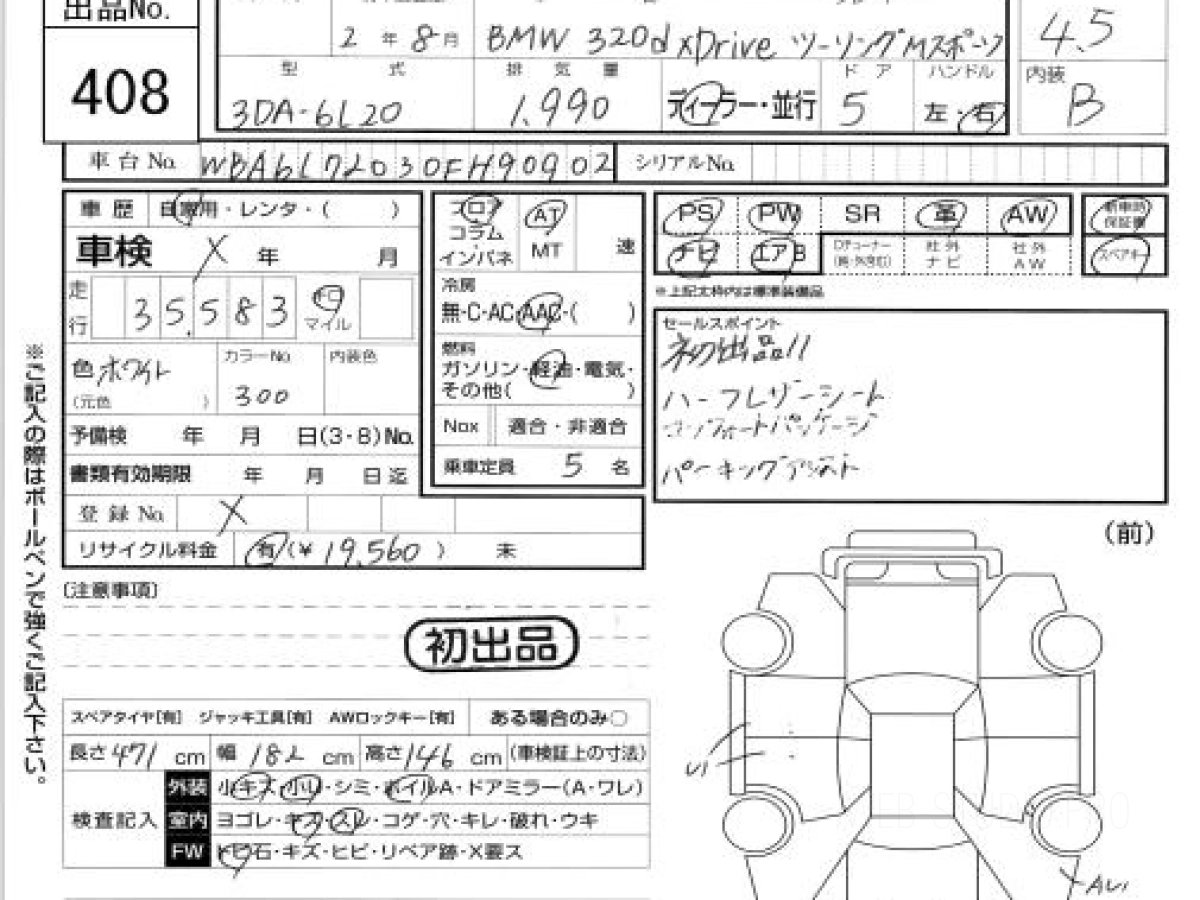 出品No.
408
2 年 8 月 BMW 320d xDrive ツーリングMスポーツ
4.5
型 式 排 気 量 ドア ハンドル
3DA-6L20 1.990 ディーラー・並行 5 左・右
内装
B
車台No. WBA6L72030FH90902 シリアルNo.
車歴 自家用・レンタ・( )
車検 X 年 月
走行 35,583 キロ マイル
色 ホワイト
(元色 )
カラーNo. 300
内装色
予備検 年 月 日(3・8)No.
書類有効期限 年 月 日迄
登録No. X
リサイクル料金 有(¥ 19,560 ) 未
フロア
コラム
インパネ
AT
MT
速
冷房
無・C・AC・AAC・( )
燃料
ガソリン・軽油・電気・
その他( )
Nox 適合・非適合
乗車定員 5 名
PS PW SR 革 AW
ナビ エアB Dチューナー 社外ナビ 社外AW
新車時保証書
スペアキー
※上記太枠内は標準装備品
セールスポイント
初出品!!
ハーフレザーシート
コンフォートパッケージ
パーキングアシスト
※ご記入の際はボールペンで強くご記入下さい。
(前)
〔注意事項〕
初出品
スペアタイヤ[有] ジャッキ工具[有] AWロックキー[有] ある場合のみ○
長さ 471 cm 幅 182 cm 高さ 146 cm (車検証上の寸法)
検査記入
外装 小キズ・小U・シミ・ホイルA・ドアミラー(A・ワレ)
室内 ヨゴレ・キズ・スレ・コゲ・穴・キレ・破れ・ウキ
FW トビ石・キズ・ヒビ・リペア跡・X要ス
U1
AU1